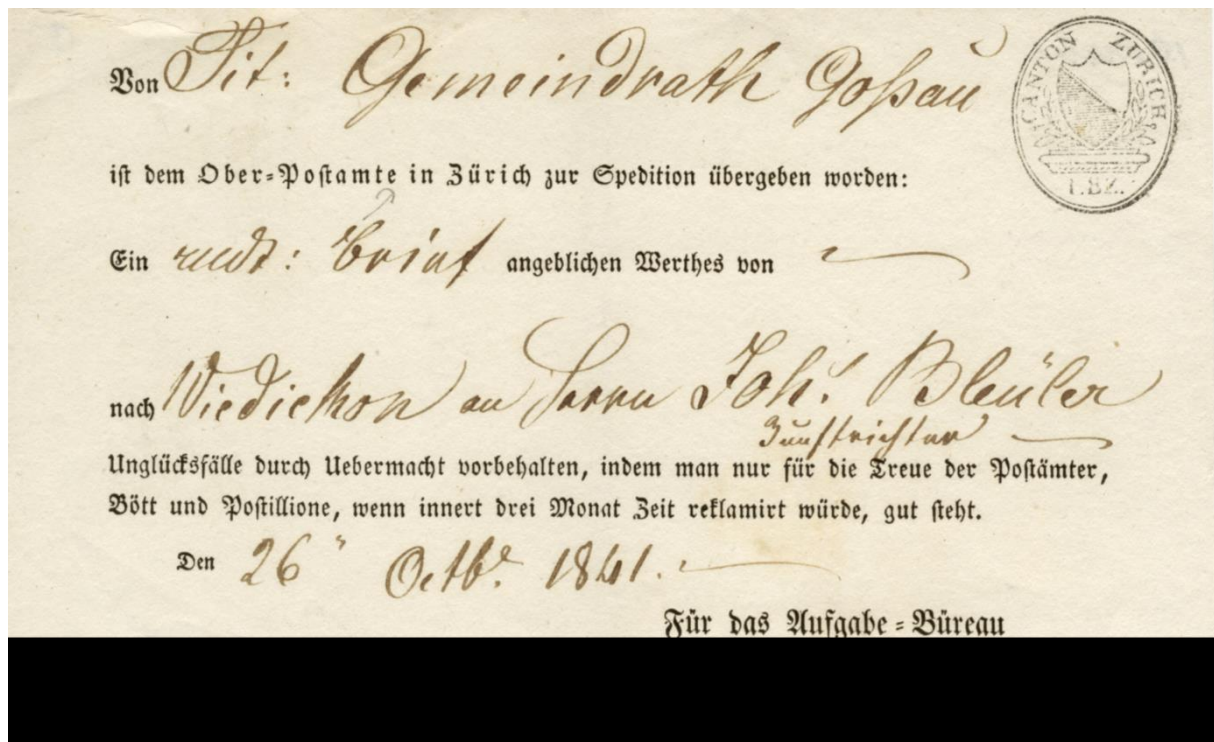 Von Tit: Gemeindrath Goßau
CANTON ZÜRICH
1.BZ.
ist dem Ober=Postamte in Zürich zur Spedition übergeben worden:
Ein Brief angeblichen Werthes von
nach Wiedickon an Herrn Joh: Bleüler
Zunftrichter
Unglücksfälle durch Uebermacht vorbehalten, indem man nur für die Treue der Postämter,
Bött und Postillione, wenn innert drei Monat Zeit reklamirt würde, gut steht.
Den 26" Octbr. 1841.
Für das Aufgabe=Büreau